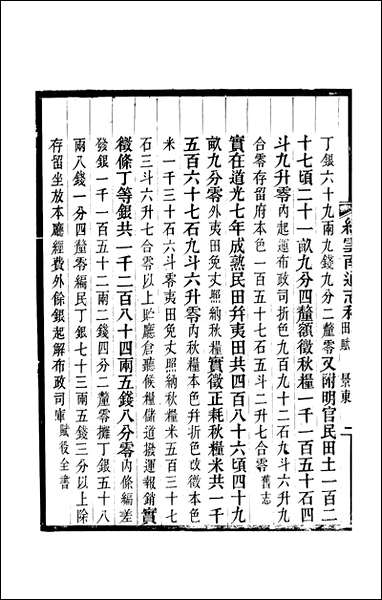 續雲南通志稿 田賦 景東 二
丁銀六十九兩九錢九分二釐零又附明官民田土一百二
十七頃二十一畝九分四釐額徵秋糧一千一百五十石四
斗九升零內起運布政司折色九百九十二石九斗六升九
合零存留府本色一百五十七石五斗二升七合零舊志
實在道光七年成熟民田幷夷田共四百八十六頃四十九
畝九分零外夷田免丈照納秋糧實徵正耗秋糧米共一千
五百六十七石九斗六升零內秋糧本色幷折色改徵本色
米一千三十石六斗零夷田免丈照納秋糧米五百三十七
石三斗六升七合零以上貯廳倉聽候糧儲道撥運報銷實
徵條丁等銀共一千二百八十四兩五錢八分零內條編差
發銀一千一百五十二兩二錢四分二釐零攤丁銀五十八
兩八錢一分四釐零編民丁銀七十三兩五錢三分以上除
存留坐放本廳經費外餘銀起解布政司庫賦役全書